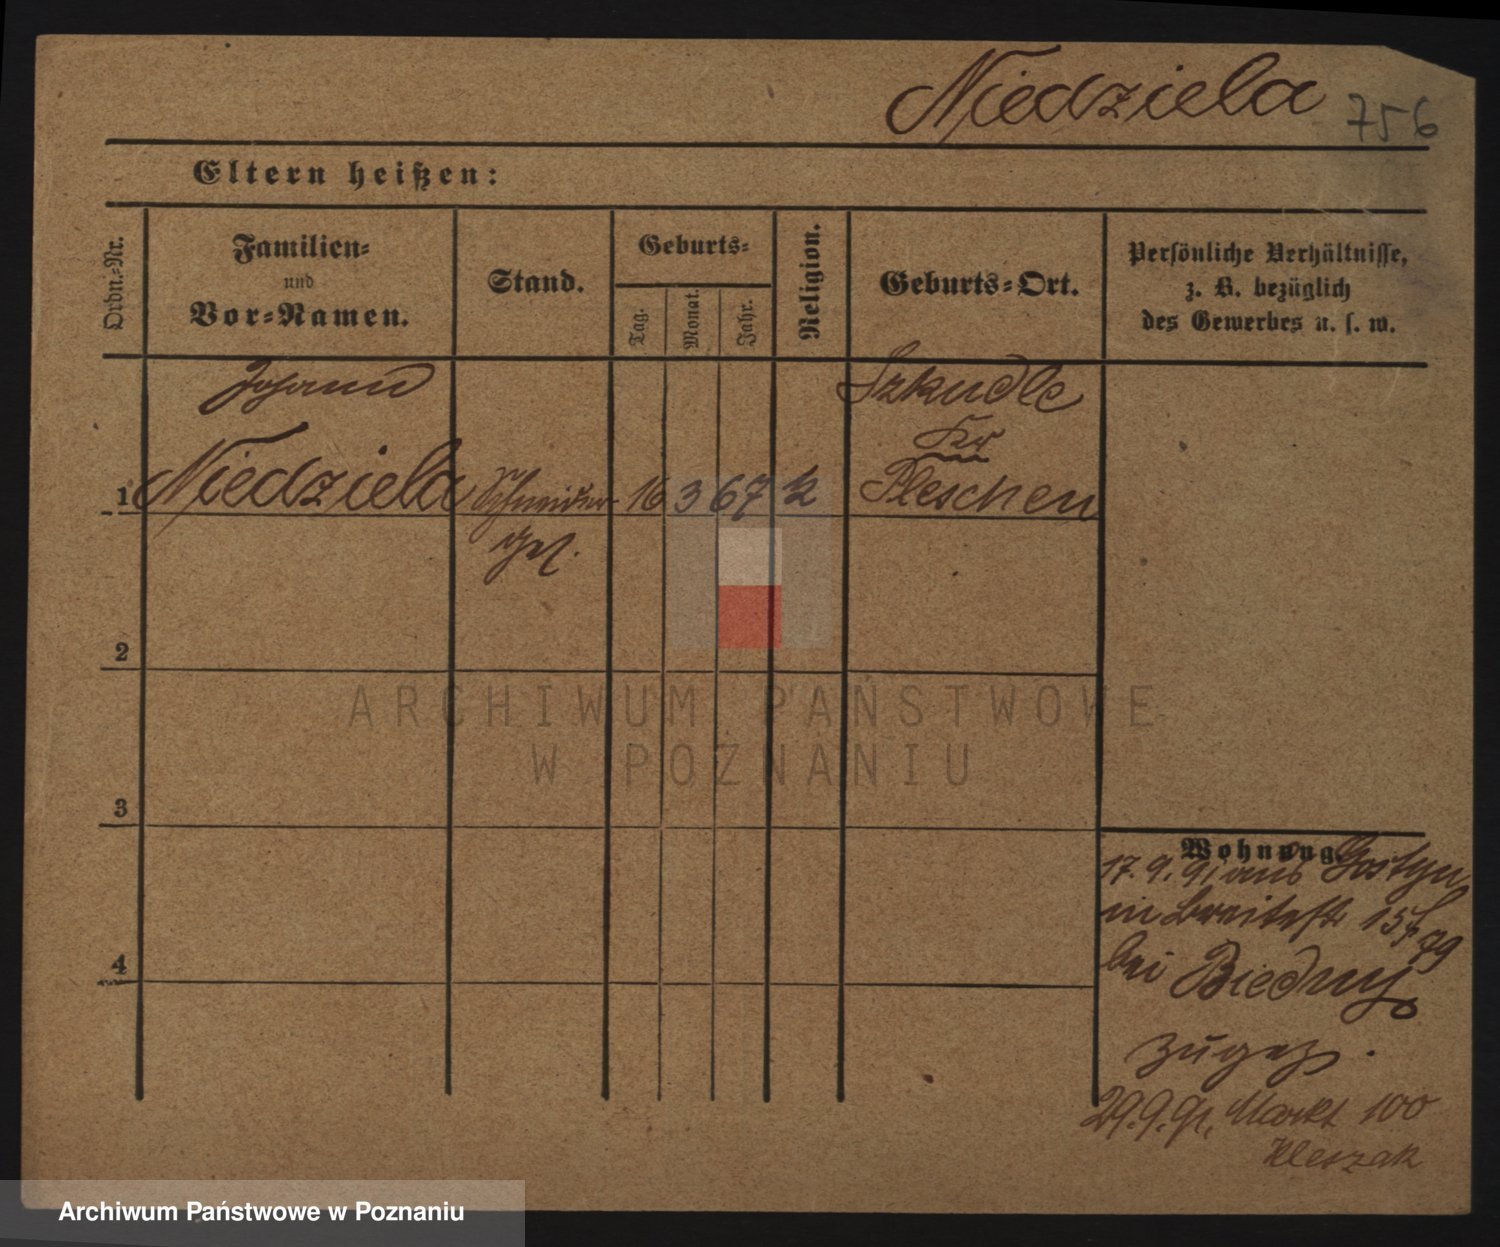 Niedziela 756
Eltern heißen:
Ordn.-Nr.
Familien-
und
Vor-Namen.
Stand.
Geburts-
Tag.
Monat.
Jahr.
Religion.
Geburts-Ort.
Persönliche Verhältnisse,
z. B. bezüglich
des Gewerbes u. s. w.
Johann
Szkudle
Kr
1 Niedziela Schneider- 16 3 67 k Pleschen
ges.
2
3
4
Wohnung.
17. 9. 91 aus Gostyn
in Breitestr 15/
79
bei Biedny
zugez.
29. 9. 91. Markt 100
Kleszak
ARCHIWUM PAŃSTWOWE
W POZNANIU
Archiwum Państwowe w Poznaniu